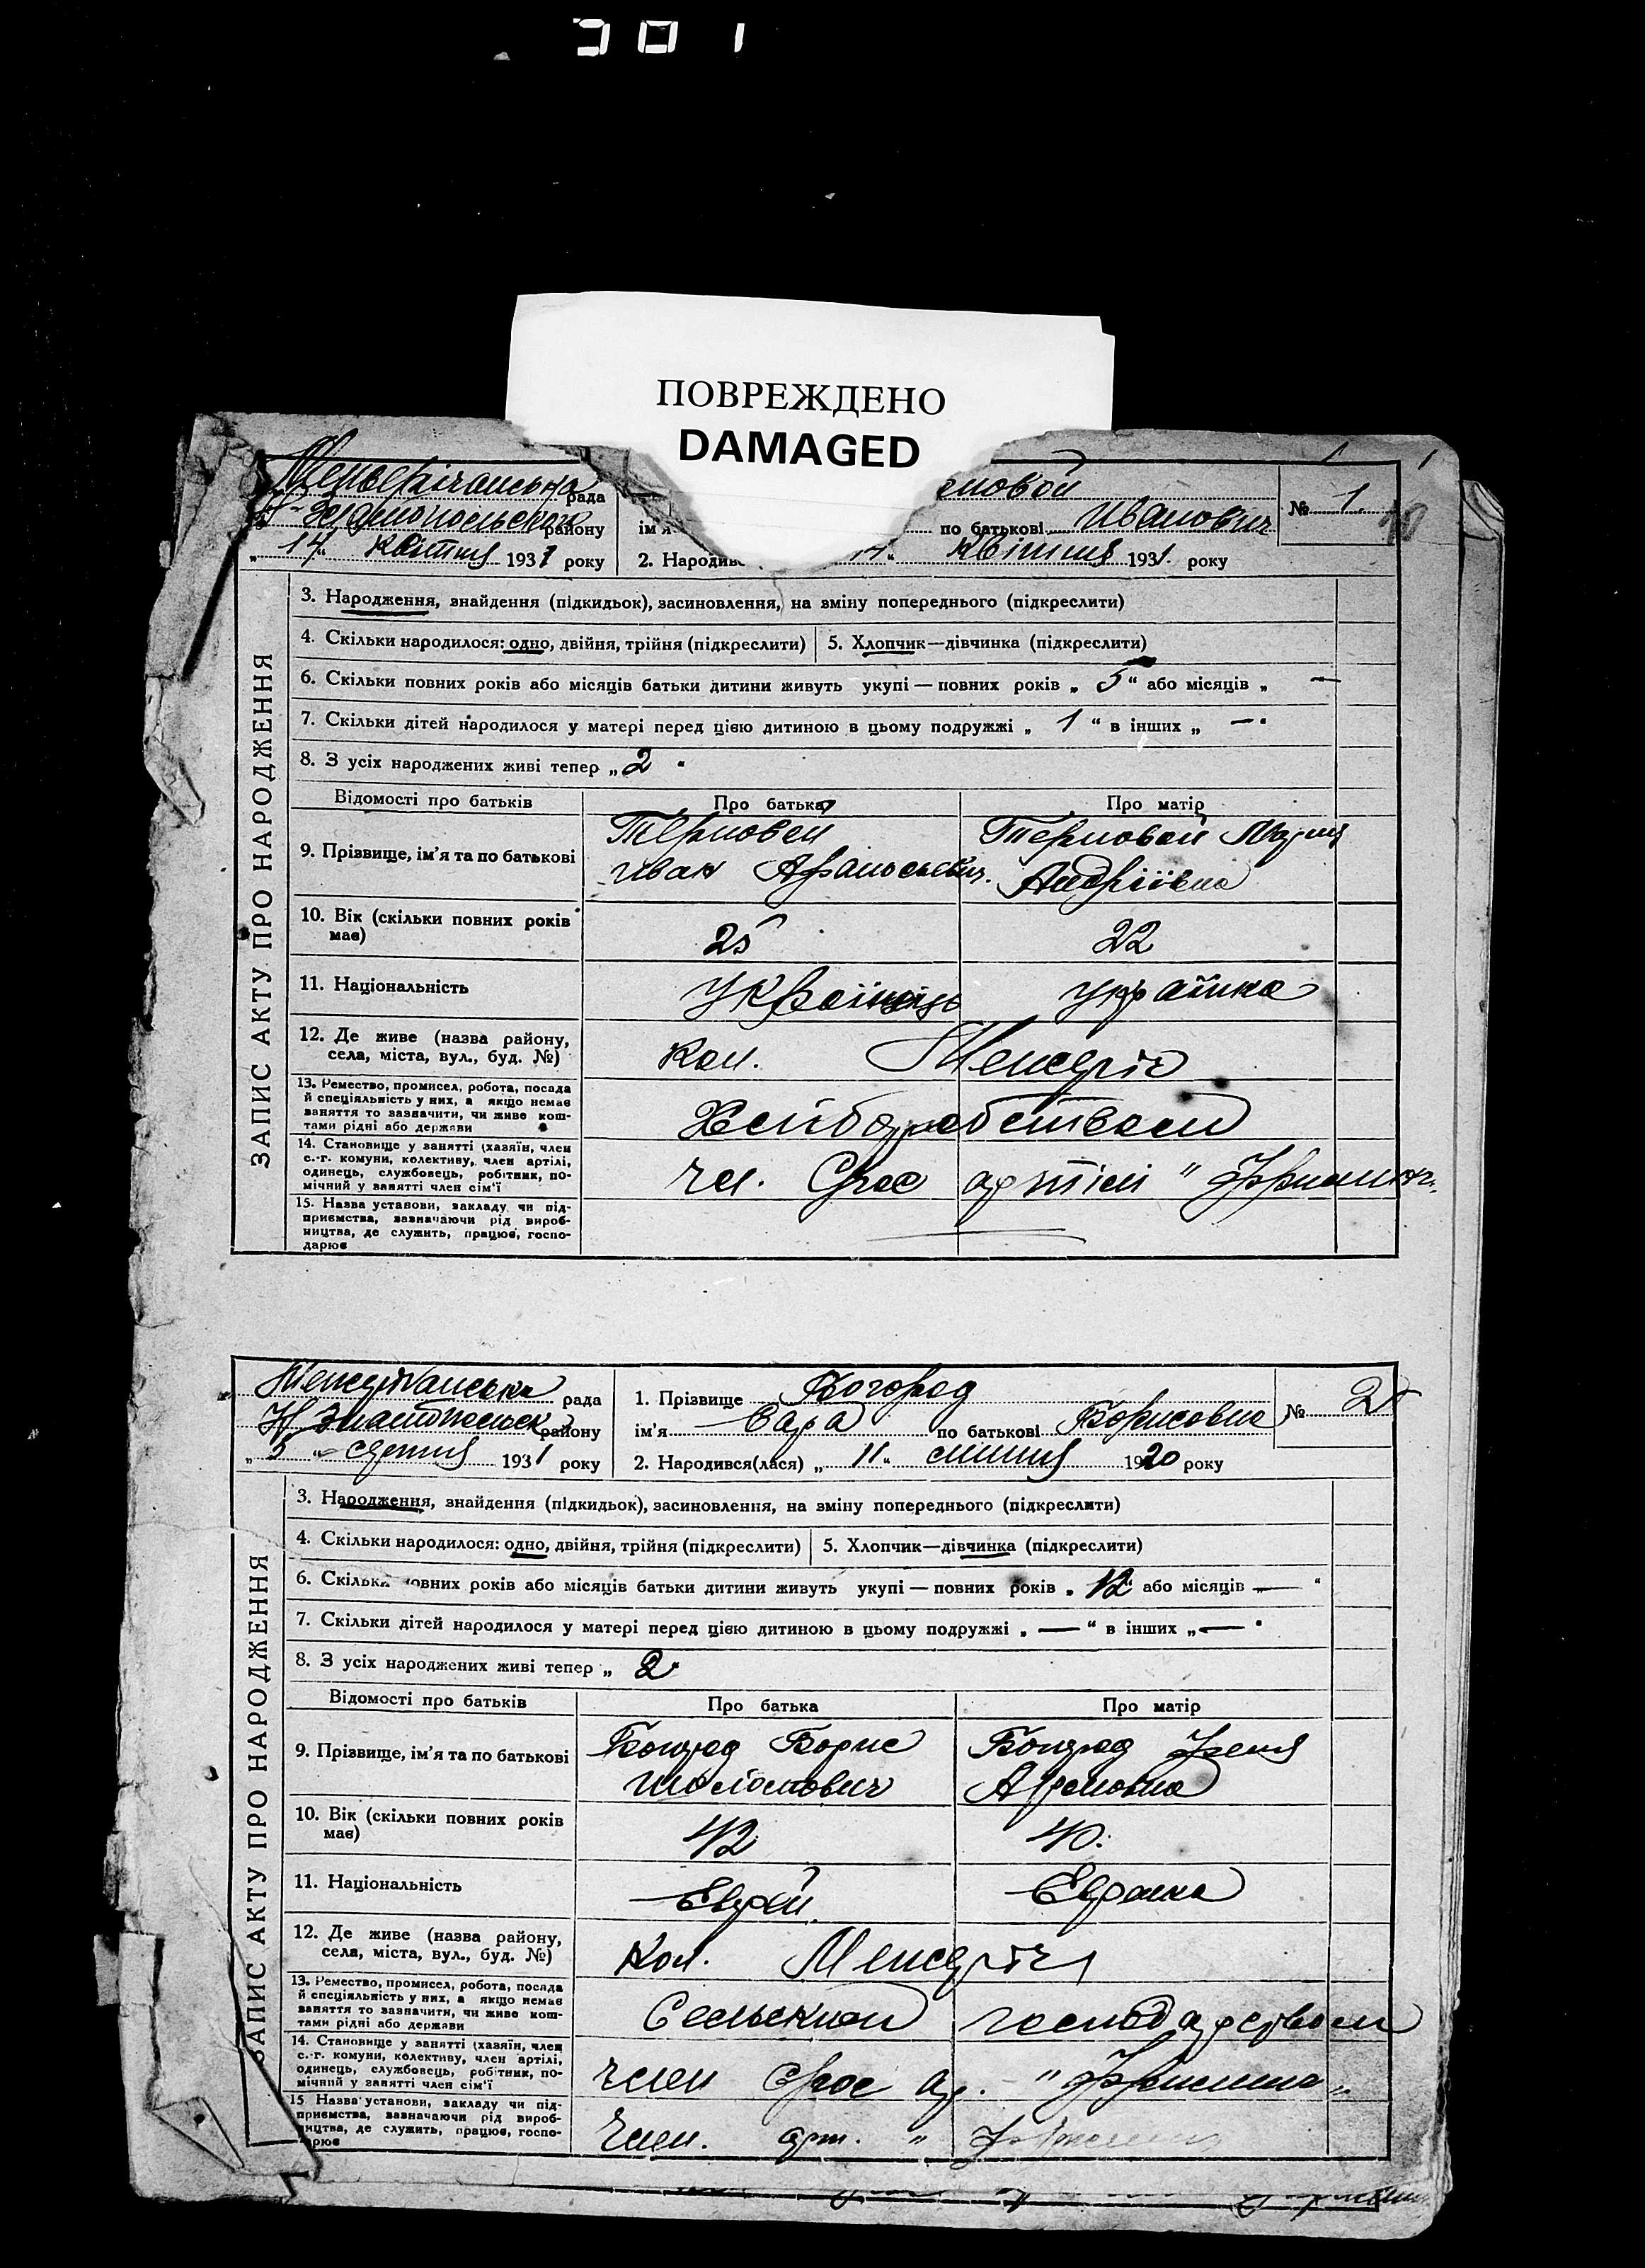 301
ПОВРЕЖДЕНО
DAMAGED
рада
району
"14" квітня 1931 року
еповой
ім'я по батькові Иванович
2. Народивс 14" квітня 1931 року
№ 1.
ЗАПИС АКТУ ПРО НАРОДЖЕННЯ
3. Народження, знайдення (підкидьок), засиновлення, на зміну попереднього (підкреслити)
4. Скільки народилося: одно, двійня, трійня (підкреслити) 5. Хлопчик—дівчинка (підкреслити)
6. Скільки повних років або місяців батьки дитини живуть укупі — повних років „ 5 “ або місяців „ —
7. Скільки дітей народилося у матері перед цією дитиною в цьому подружжі „ 1 “ в інших „ —
8. З усіх народжених живі тепер „ 2 “
Відомості про батьків Про батька Про матір
9. Прізвище, ім'я та по батькові
Терновей Терновой Мария
Иван Афанасьевич. Андріївна
10. Вік (скільки повних років
має) 25 22
11. Національність Українець українка
12. Де живе (назва району,
села, міста, вул., буд. №) Кол.
13. Ремество, промисел, робота, посада
й спеціяльність у них, а якщо немає
заняття то зазначити, чи живе кош-
тами рідні або держави
14. Становище у занятті (хазяїн, член
с.-г. комуни, колективу, член артілі,
одинець, службовець, робітник, по-
мічний у занятті член сім'ї чл. артілі
15. Назва установи, закладу чи під-
приємства, зазначаючи рід вироб-
ництва, де служить, працює, госпо-
дарює
рада
району
„ 5 “ серпня 1931 року
1. Прізвище Богорад
ім'я Сара по батькові Борисовна
2. Народився(лася) „ 11 “ липня 1920 року
№ 2
ЗАПИС АКТУ ПРО НАРОДЖЕННЯ
3. Народження, знайдення (підкидьок), засиновлення, на зміну попереднього (підкреслити)
4. Скільки народилося: одно, двійня, трійня (підкреслити) 5. Хлопчик—дівчинка (підкреслити)
6. Скільки повних років або місяців батьки дитини живуть укупі — повних років „ 12 “ або місяців „ — “
7. Скільки дітей народилося у матері перед цією дитиною в цьому подружжі „ — “ в інших „ — “
8. З усіх народжених живі тепер „ 2 “
Відомості про батьків Про батька Про матір
9. Прізвище, ім'я та по батькові
Богорад Борис Богорад Женя
10. Вік (скільки повних років
має) 42 40.
11. Національність Еврей Еврейка
12. Де живе (назва району,
села, міста, вул., буд. №) Кол.
13. Ремество, промисел, робота, посада
й спеціяльність у них, а якщо немає
заняття то зазначити, чи живе кош-
тами рідні або держави Сельским господарством
14. Становище у занятті (хазяїн, член
с.-г. комуни, колективу, член артілі,
одинець, службовець, робітник, по-
мічний у занятті член сім'ї член
15. Назва установи, закладу чи під-
приємства, зазначаючи рід вироб-
ництва, де служить, працює, госпо-
дарює Член. арт.